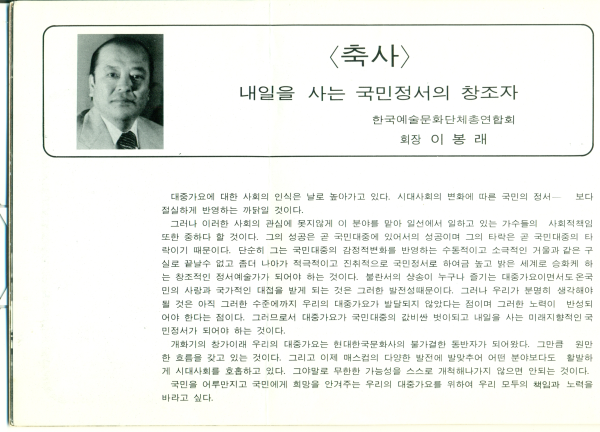 〈축사〉
내일을 사는 국민정서의 창조자
한국예술문화단체총연합회
회장 이 봉 래
대중가요에 대한 사회의 인식은 날로 높아가고 있다. 시대사회의 변화에 따른 국민의 정서— 보다
절실하게 반영하는 까닭일 것이다.
그러나 이러한 사회의 관심에 못지않게 이 분야를 맡아 일선에서 일하고 있는 가수들의 사회적책임
또한 중하다 할 것이다. 그의 성공은 곧 국민대중에 있어서의 성공이며 그의 타락은 곧 국민대중의 타
락이기 때문이다. 단순히 그는 국민대중의 감정적변화를 반영하는 수동적이고 소극적인 거울과 같은 구
실로 끝날수 없고 좀더 나아가 적극적이고 진취적으로 국민정서로 하여금 높고 밝은 세계로 승화케 하
는 창조적인 정서예술가가 되어야 하는 것이다. 불란서의 샹송이 누구나 즐기는 대중가요이면서도 온국
민의 사랑과 국가적인 대접을 받게 되는 것은 그러한 발전성때문이다. 그러나 우리가 분명히 생각해야
될 것은 아직 그러한 수준에까지 우리의 대중가요가 발달되지 않았다는 점이며 그러한 노력이 반성되
어야 한다는 점이다. 그러므로서 대중가요가 국민대중의 값비싼 벗이되고 내일을 사는 미래지향적인 국
민정서가 되어야 하는 것이다.
개화기의 창가이래 우리의 대중가요는 현대한국문화사의 불가결한 동반자가 되어왔다. 그만큼 원만
한 흐름을 갖고 있는 것이다. 그리고 이제 매스컴의 다양한 발전에 발맞추어 어떤 분야보다도 활발하
게 시대사회를 호흡하고 있다. 그야말로 무한한 가능성을 스스로 개척해나가지 않으면 안되는 것이다.
국민을 어루만지고 국민에게 희망을 안겨주는 우리의 대중가요를 위하여 우리 모두의 책임과 노력을
바라고 싶다.